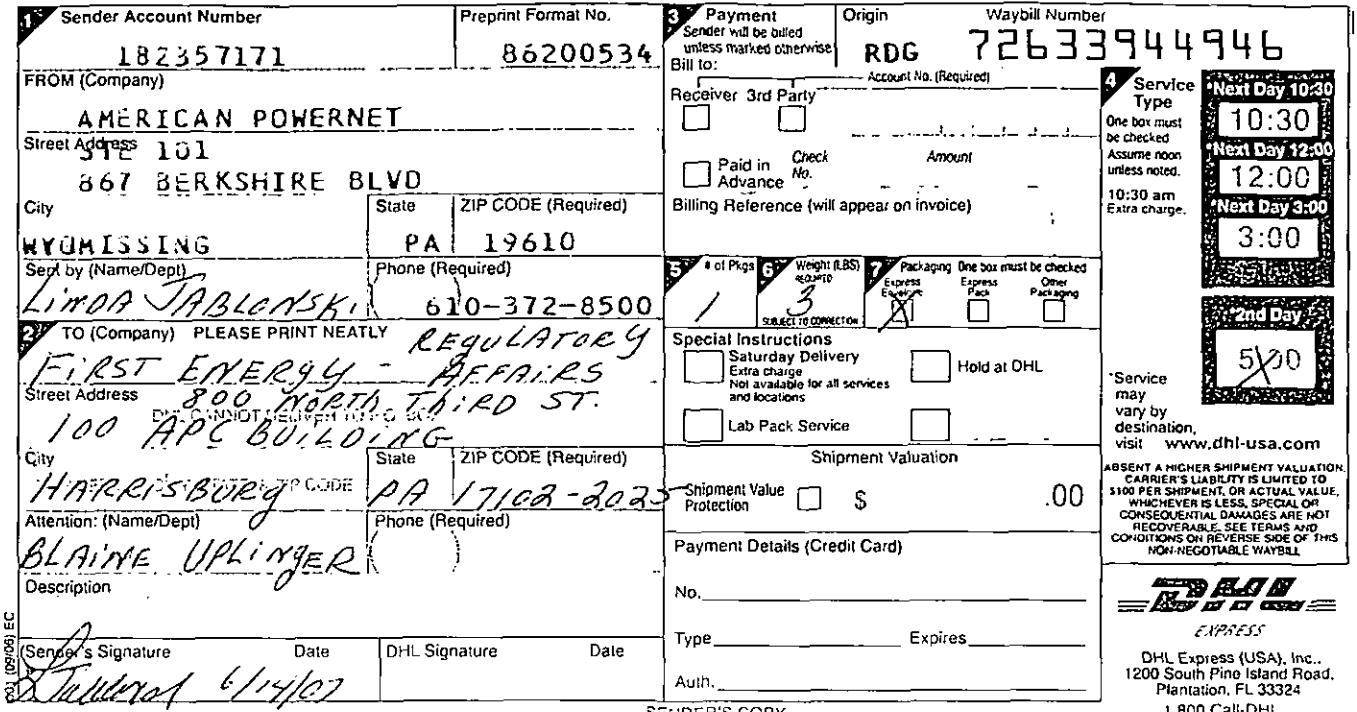 1 Sender Account Number
182357171
Preprint Format No.
86200534
FROM (Company)
AMERICAN POWERNET
Street Address
STE 101
867 BERKSHIRE BLVD
City
WYOMISSING
State
PA
ZIP CODE (Required)
19610
Sent by (Name/Dept)
LINDA JABLONSKI
Phone (Required)
610-372-8500
2 TO (Company) PLEASE PRINT NEATLY
REGULATORY
FIRST ENERGY - AFFAIRS
Street Address
800 NORTH THIRD ST.
DHL CANNOT DELIVER TO P.O. BOX
100 APC BUILDING
City
HARRISBURG
ZIP CODE
State
PA
ZIP CODE (Required)
17102-2025
Attention: (Name/Dept)
BLAINE UPLINGER
Phone (Required)
( )
Description
Sender's Signature Date
6/14/07
DHL Signature Date
001 (09/06) EC
3 Payment
Sender will be billed
unless marked otherwise
Bill to:
Origin
RDG
Waybill Number
72633944946
Account No. (Required)
Receiver 3rd Party
Paid in Advance
Check No.
Amount
Billing Reference (will appear on invoice)
5 # of Pkgs
1
6 Weight (LBS)
REQUIRED
3
SUBJECT TO CORRECTION
7 Packaging One box must be checked
Express Envelope
X
Express Pack
Other Packaging
Special Instructions
Saturday Delivery
Extra charge
Not available for all services
and locations
Hold at DHL
Lab Pack Service
Shipment Valuation
Shipment Value
Protection
$ .00
Payment Details (Credit Card)
No.
Type Expires
Auth.
4 Service
Type
One box must
be checked
Assume noon
unless noted.
10:30 am
Extra charge.
*Next Day 10:30
10:30
*Next Day 12:00
12:00
*Next Day 3:00
3:00
*2nd Day
5:00
X
*Service
may
vary by
destination,
visit www.dhl-usa.com
ABSENT A HIGHER SHIPMENT VALUATION,
CARRIER'S LIABILITY IS LIMITED TO
$100 PER SHIPMENT, OR ACTUAL VALUE,
WHICHEVER IS LESS, SPECIAL OR
CONSEQUENTIAL DAMAGES ARE NOT
RECOVERABLE. SEE TERMS AND
CONDITIONS ON REVERSE SIDE OF THIS
NON-NEGOTIABLE WAYBILL
DHL
EXPRESS
DHL Express (USA), Inc.,
1200 South Pine Island Road,
Plantation, FL 33324
1 800 Call-DHL
SENDER'S COPY